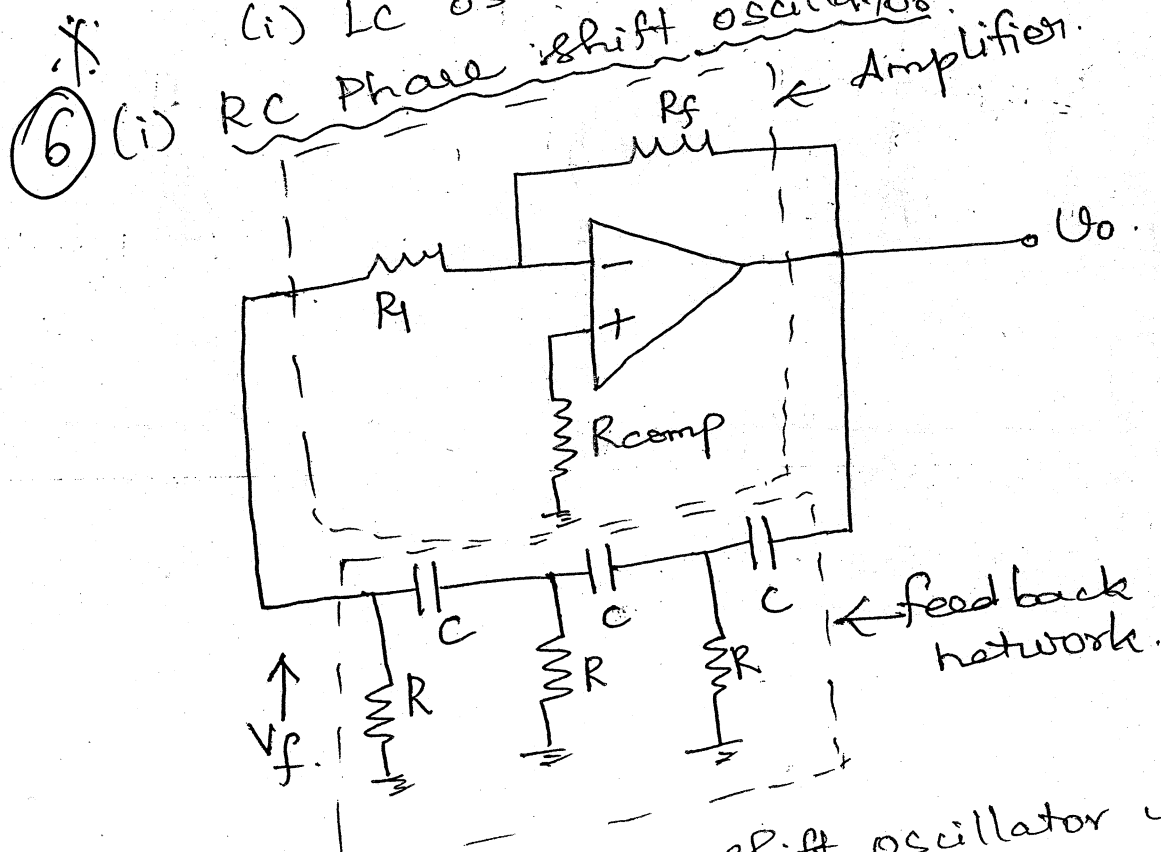 (i) LC
6 (i) RC Phase shift oscillator.
← Amplifier.
Rf
R1
−
+
Vo.
Rcomp
C
C
C
R
R
R
Vf.
← feedback
network.
shift oscillator